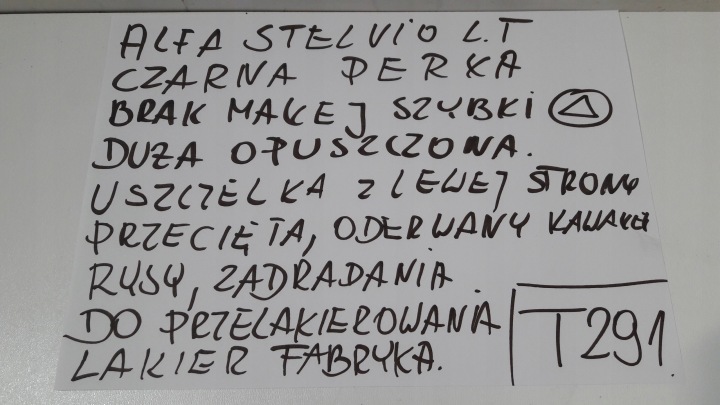 ALFA STELVIO L.T
CZARNA PERŁA
BRAK MAŁEJ SZYBKI
DUŻA OPUSZCZONA.
USZCZELKA Z LEWEJ STRONY
PRZECIĘTA, ODERWANY KAWAŁEK
RYSY, ZADRADANIA.
DO PRZELAKIEROWANIA
LAKIER FABRYKA.
T291.